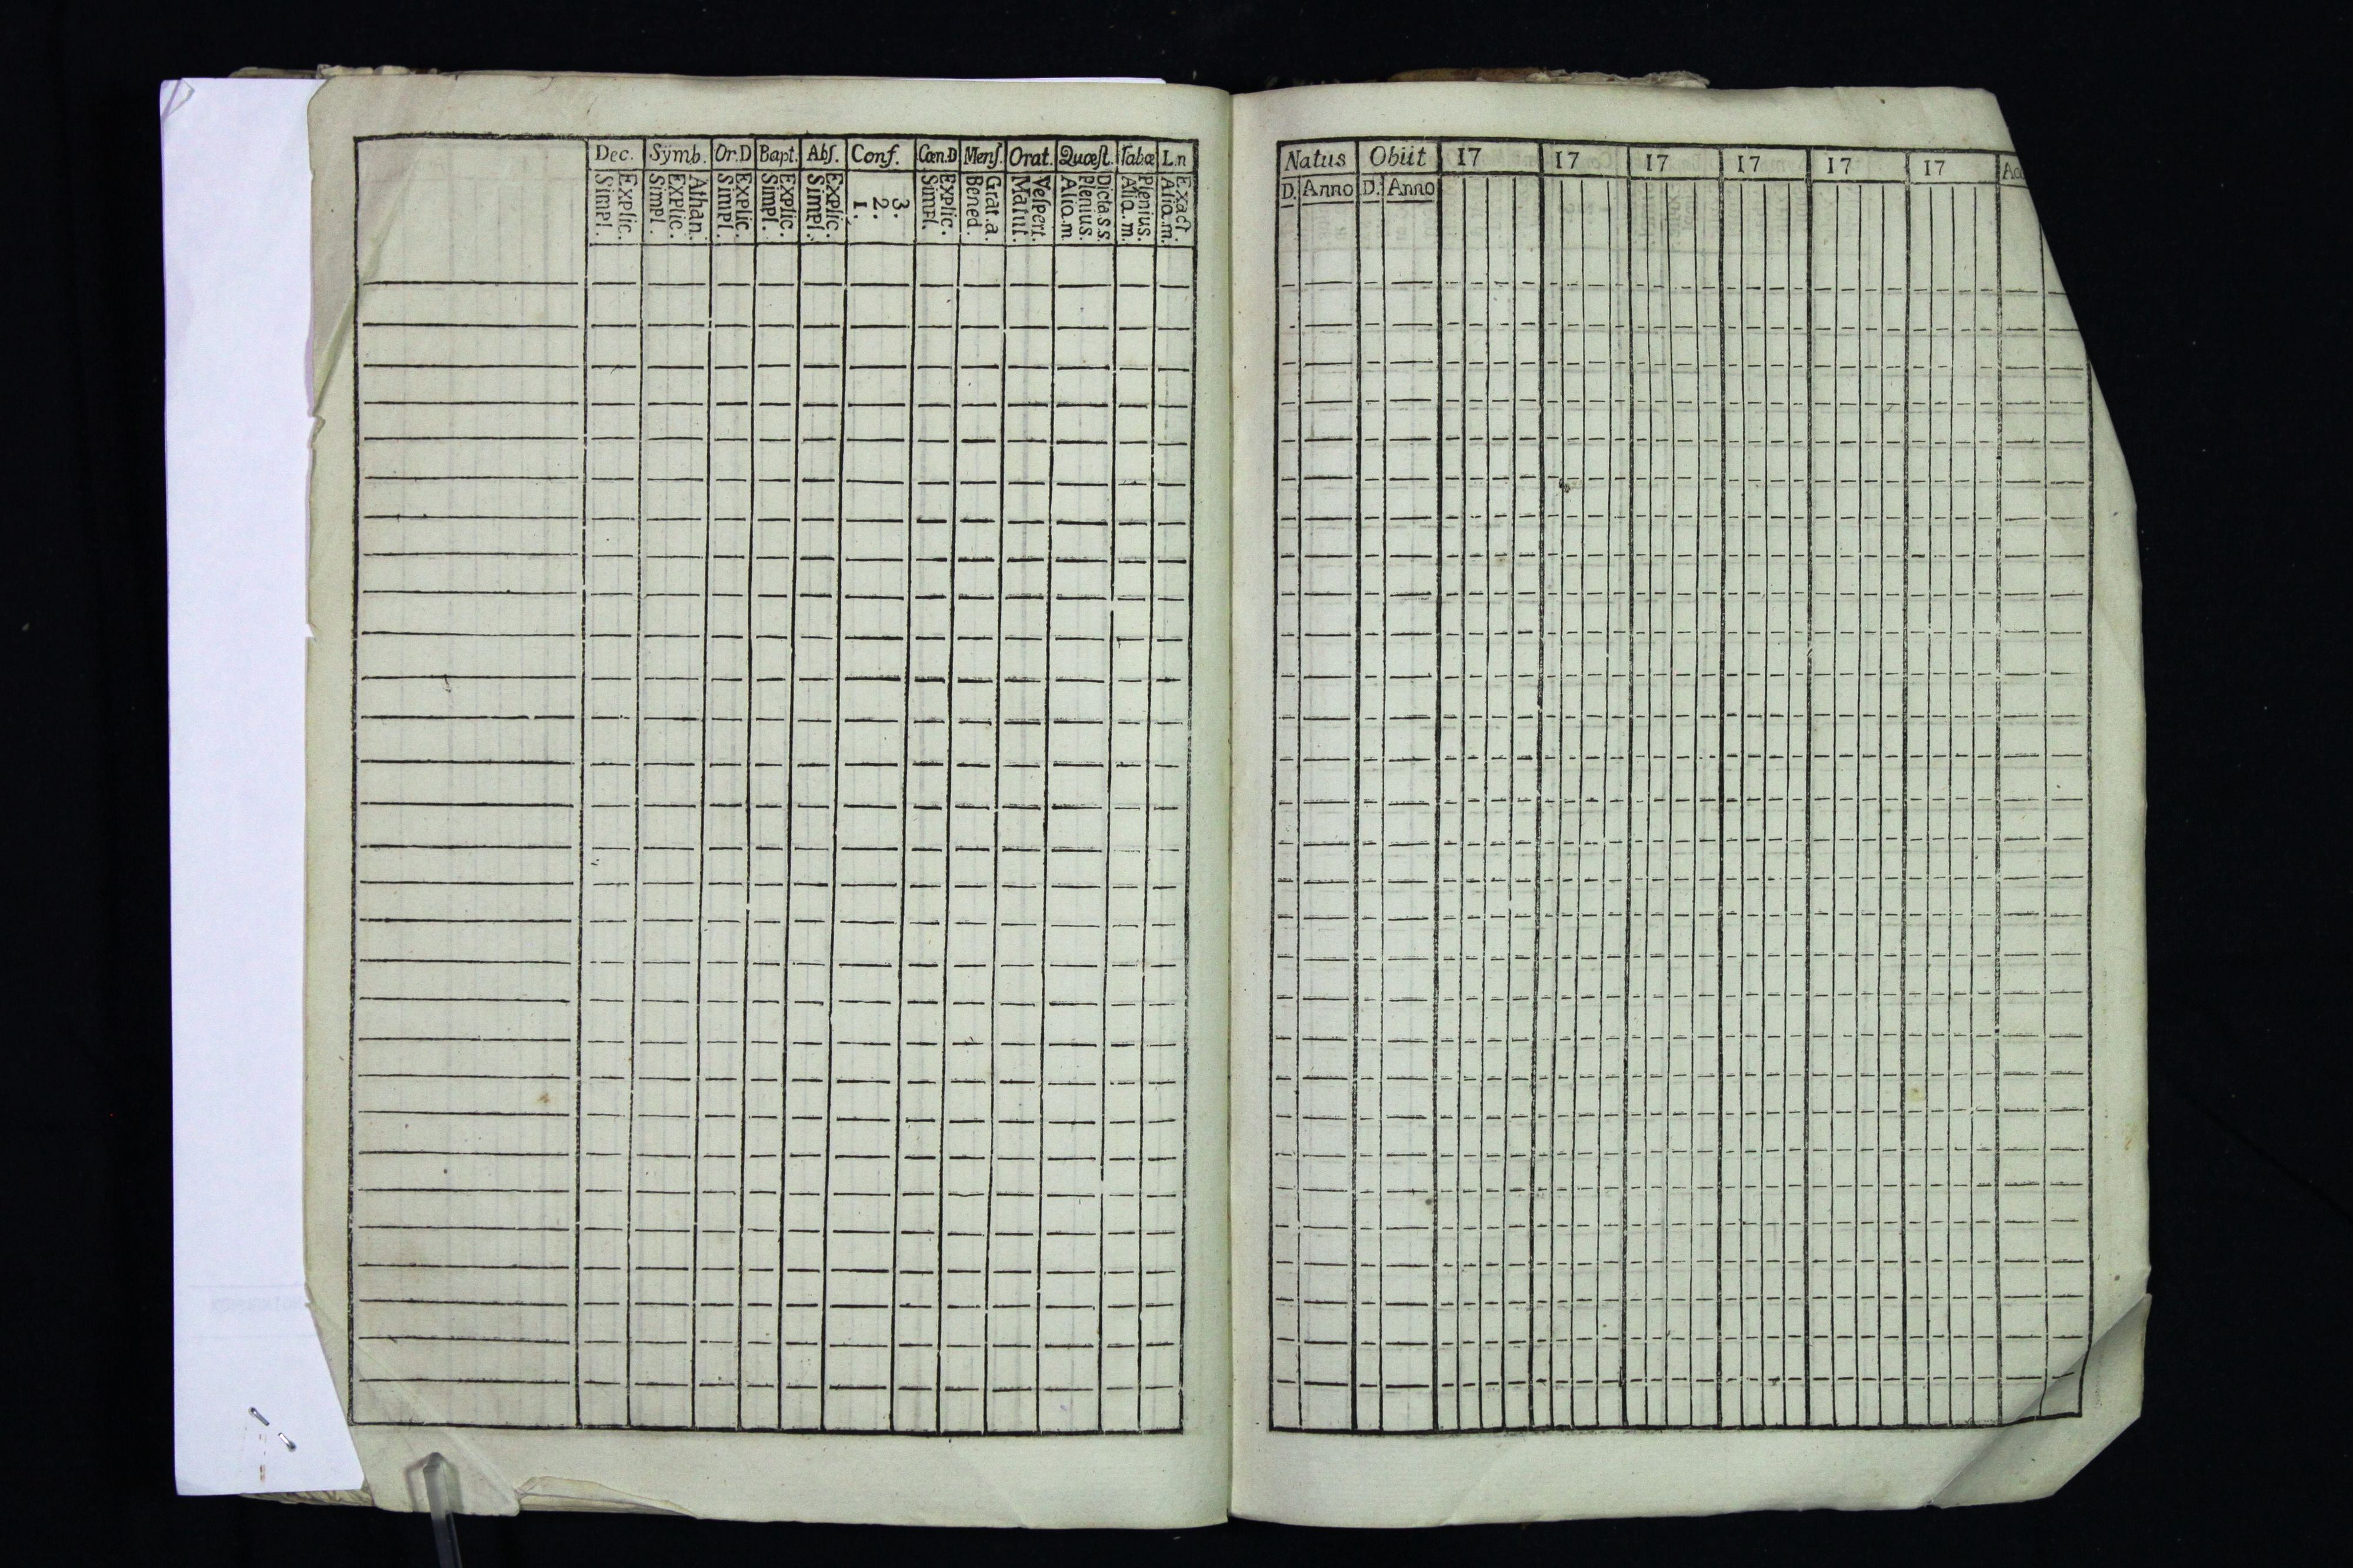 Dec. Sÿmb. Or.D Bapt. Abſ. Conf. Cœn.D Menſ. Orat. Quœſt. Tabœ L.n
Simpl. Explic. Simpl. Explic. Athan. Simpl. Explic. Simpl. Explic. Simpl. Explic. 1. 2. 3. Simpl. Explic. Bened. Grat.a. Matut. Veſpert. Alia.m Plenius. Dicta.s.s. Alia.m. Plenius. Alia.m. Exact.
Natus Obiit 17 17 17 17 17 17
D. Anno D. Anno